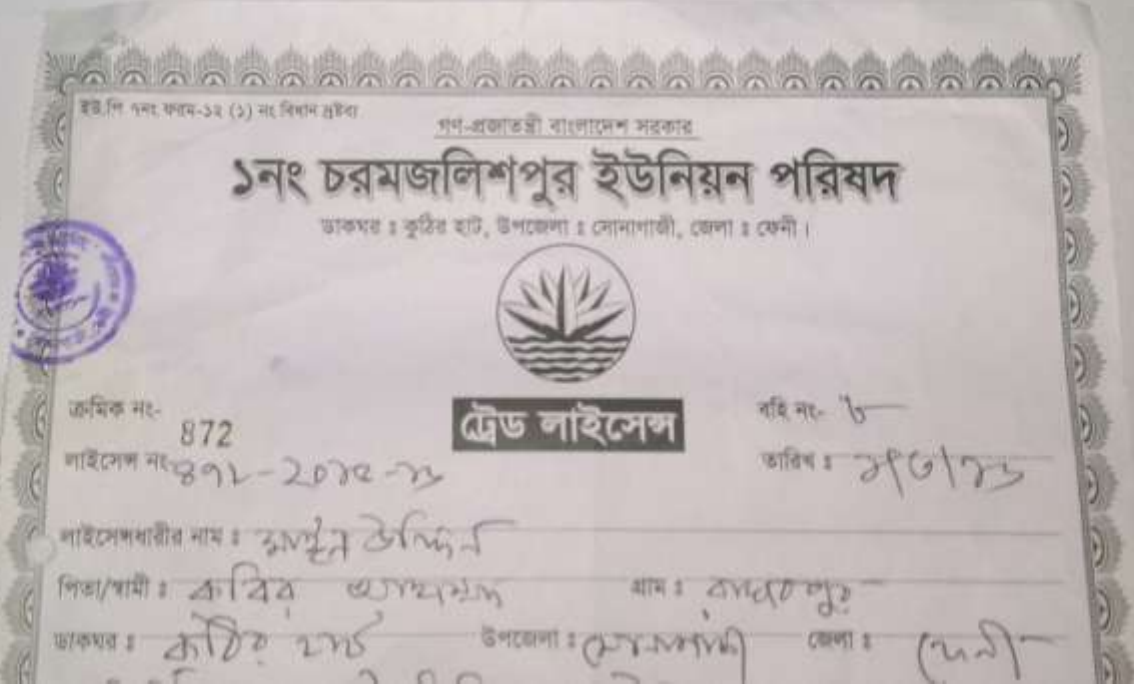 ইউ.পি ৭নং ফরম-১২ (১) নং বিধান দ্রষ্টব্য
গণ-প্রজাতন্ত্রী বাংলাদেশ সরকার
১নং চরমজলিশপুর ইউনিয়ন পরিষদ
ডাকঘর ঃ কুঠির হাট, উপজেলা ঃ সোনাগাজী, জেলা ঃ ফেনী।
ক্রমিক নং- 872
ট্রেড লাইসেন্স
বহি নং- ৮
লাইসেন্স নং ৪৭২-২০১৫-১৬
তারিখ ঃ
লাইসেন্সধারীর নাম ঃ মাঈন উদ্দিন
পিতা/স্বামী ঃ কবির আহাম্মদ গ্রাম ঃ
ডাকঘর ঃ কুঠির হাট উপজেলা ঃ সোনাগাজী জেলা ঃ ফেনী